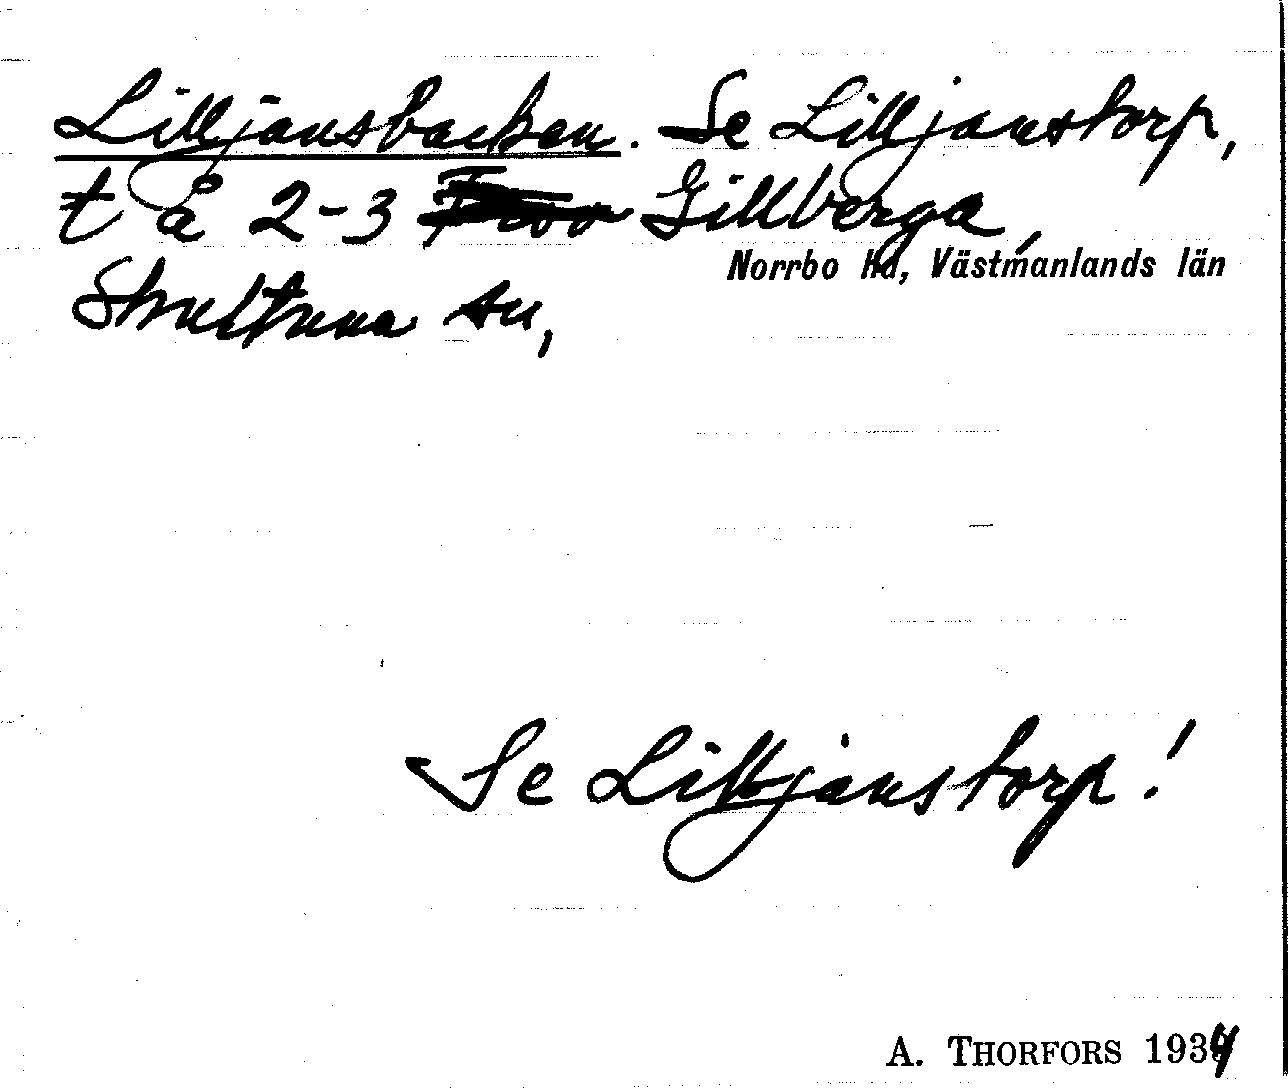 Lilljansbacken. Se Lilljanstorp,
t å 2-3 Gillberga,
Norrbo hd, Västmanlands län
Skultuna sn,
Se Lilljanstorp!
A. THORFORS 1934